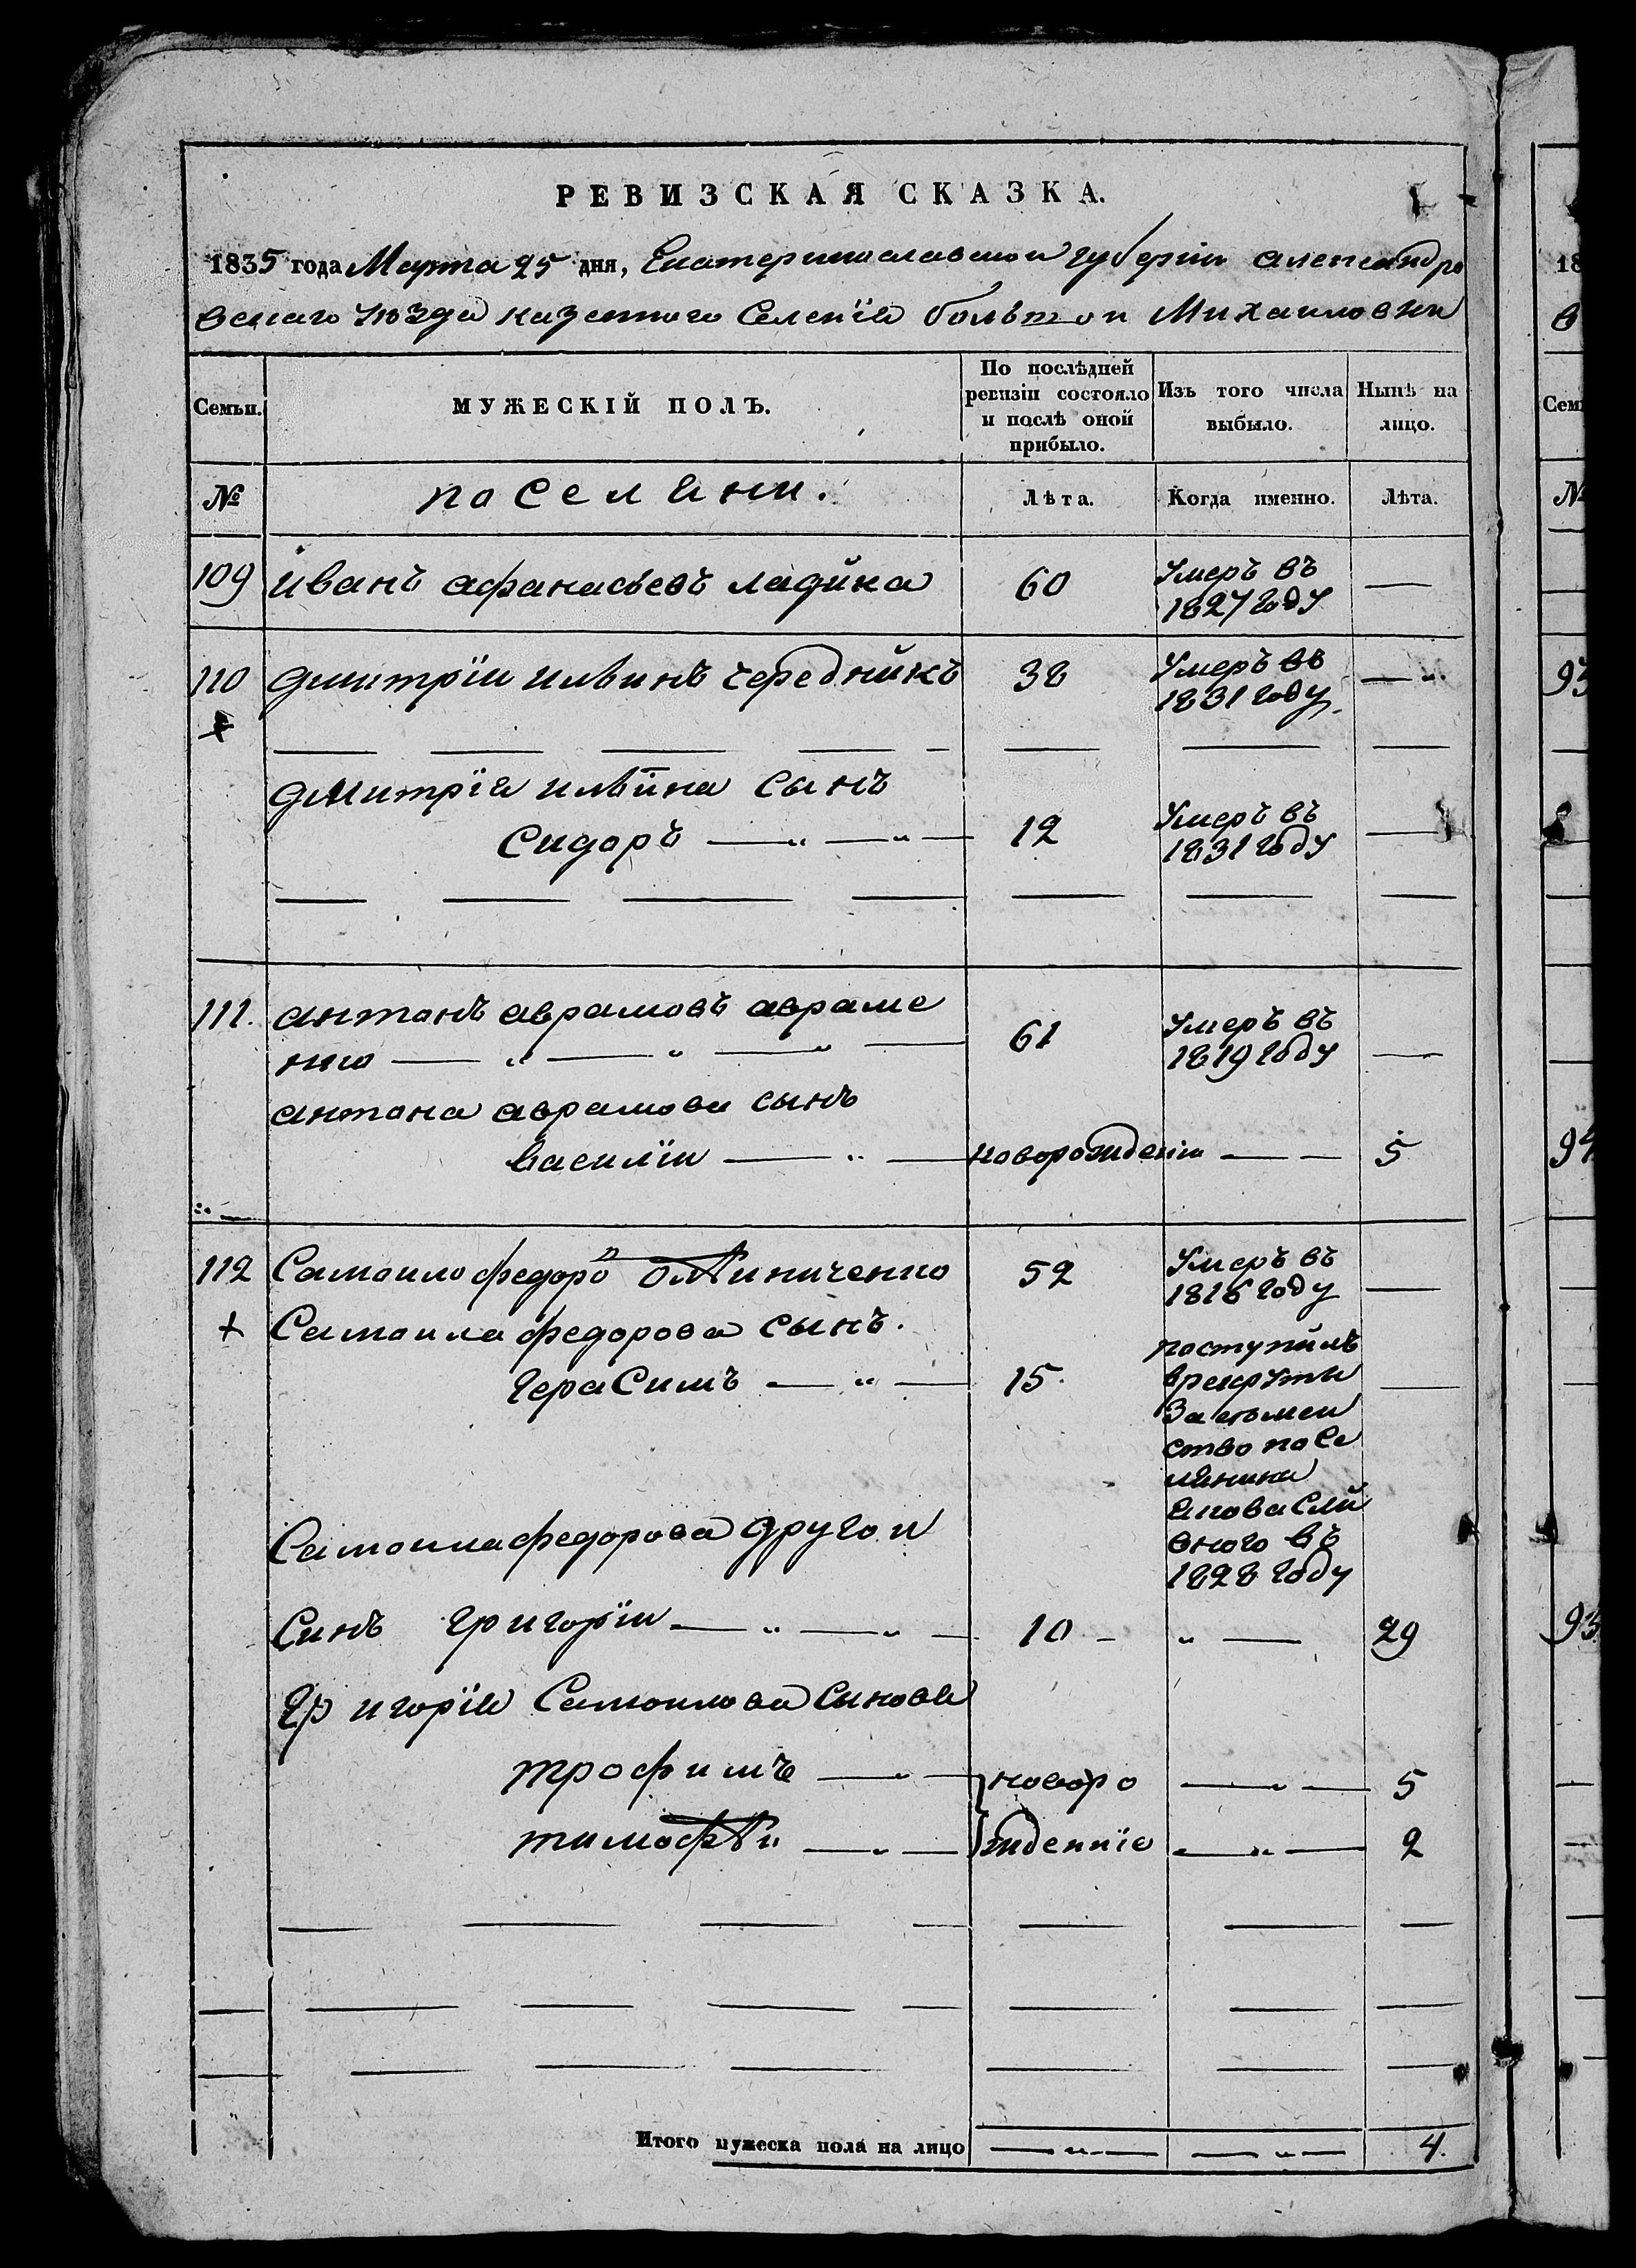 РЕВИЗСКАЯ СКАЗКА.
1835 года Марта 25 дня, Екатеринославской губерніи александро
вскаго уѣзда казенного Селенія большои Михаиловки
Семьи. МУЖЕСКІЙ ПОЛЪ. По послѣдней ревизіи состояло и послѣ оной прибыло. Изъ того числа выбыло. Нынѣ на лицо.
№ поселяни. Лѣта. Когда именно. Лѣта.
109 иванъ афанасьевъ ладика 60 Умеръ въ
1827 году
110 дмитріи ильинъ чередникъ 38 Умеръ въ
1831 году
дмитрія ильина сынъ
сидоръ 12 Умеръ въ
1831 году
111. антонъ аврамовъ авраме
нко 61 Умеръ въ
1819 году
антона аврамова сынъ
василіи новорожденіи 5
112 Самоило федоро олѣиниченко 52 Умеръ въ
1816 году
Самоила федорова сынъ.
герасимъ 15. поступилъ
врекруты
За
ство посе
лянина
въ
1828 году
Самоила федорова другои
Синъ григоріи 10 29
григорія Самоилова Синовя
трофимъ новоро 5
тимофѣи жденніе 2
Итого мужеска пола на лицо 4.
18
в
Сем
№
93
94
95